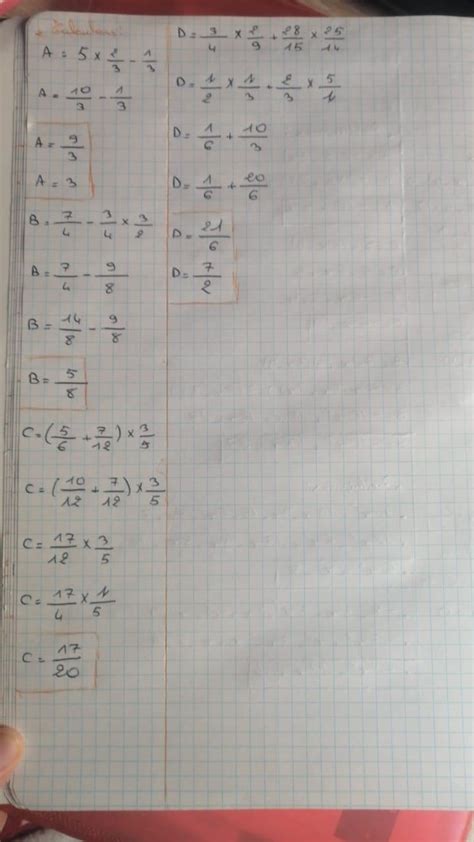 Calculons:
A = 5 × 2/3 - 1/3
A = 10/3 - 1/3
A = 9/3
A = 3
B = 7/4 - 3/4 × 3/2
B = 7/4 - 9/8
B = 14/8 - 9/8
B = 5/8
C = (5/6 + 7/12) × 3/5
C = (10/12 + 7/12) × 3/5
C = 17/12 × 3/5
C = 17/4 × 1/5
C = 17/20
D = 3/4 × 2/9 + 28/15 × 25/14
D = 1/2 × 1/3 + 2/3 × 5/1
D = 1/6 + 10/3
D = 1/6 + 20/6
D = 21/6
D = 7/2